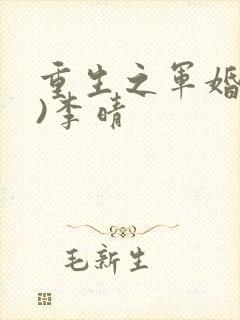 重生之军婚
)李晴
毛新生